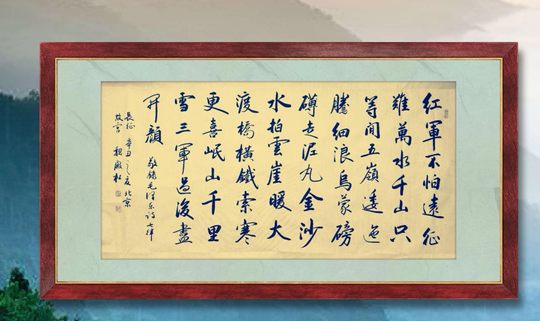 紅軍不怕遠征
難萬水千山只
等間五嶺逶迤
騰細浪烏蒙磅
礴走泥丸金沙
水拍雲崖暖大
渡橋橫鐵索寒
更喜岷山千里
雪三軍過後盡
开顏 敬錄毛澤东詩七律
長征 辛丑之夏 北京
故宫